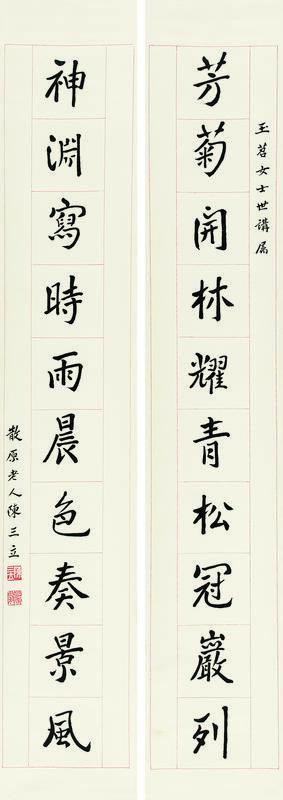 玉苕女士世講属
芳菊開林耀青松冠巖列
神淵寫時雨晨色奏景風
散原老人陳三立